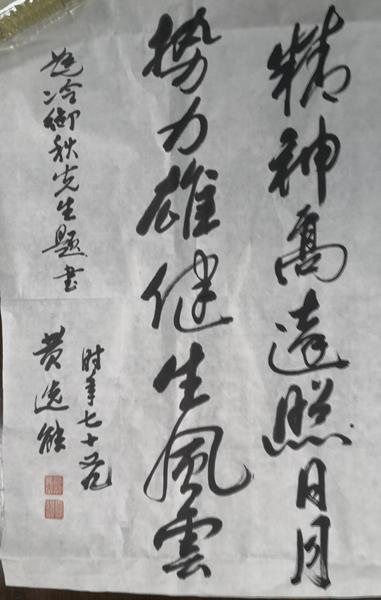 精神高遠照日月
勢力雄健生風雲
冷御秋先生題書
时年七十
黄逸